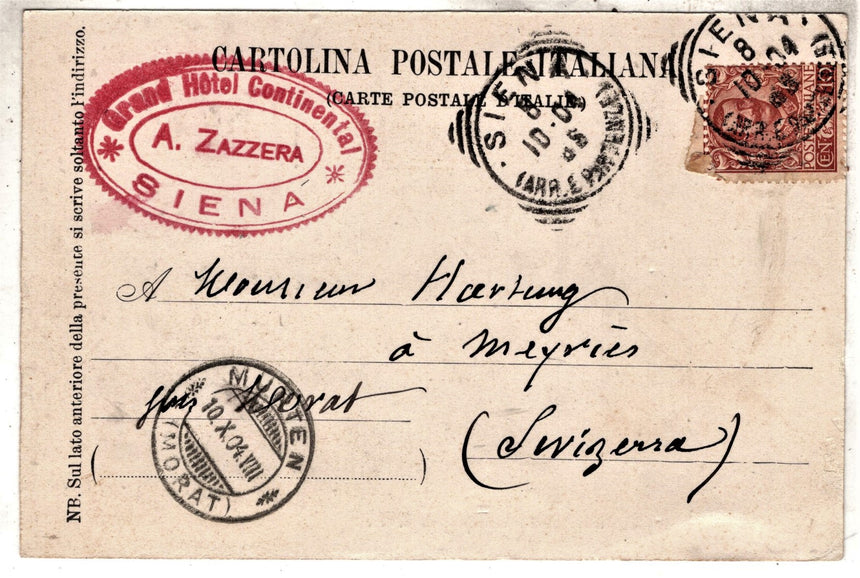 CARTOLINA POSTALE ITALIANA
(CARTE POSTALE D'ITALIE)
Grand Hôtel Continental
A. ZAZZERA
SIENA
SIENA
8
10-04
(ARR. E PARTENZE)
SIENA
8
10-04
NB. Sul lato anteriore della presente si scrive soltanto l'indirizzo.
A Monsieur Hartung
à Meyriès
près Morat
(Svizzera)
MURTEN
10.X.04.VIII
(MORAT)